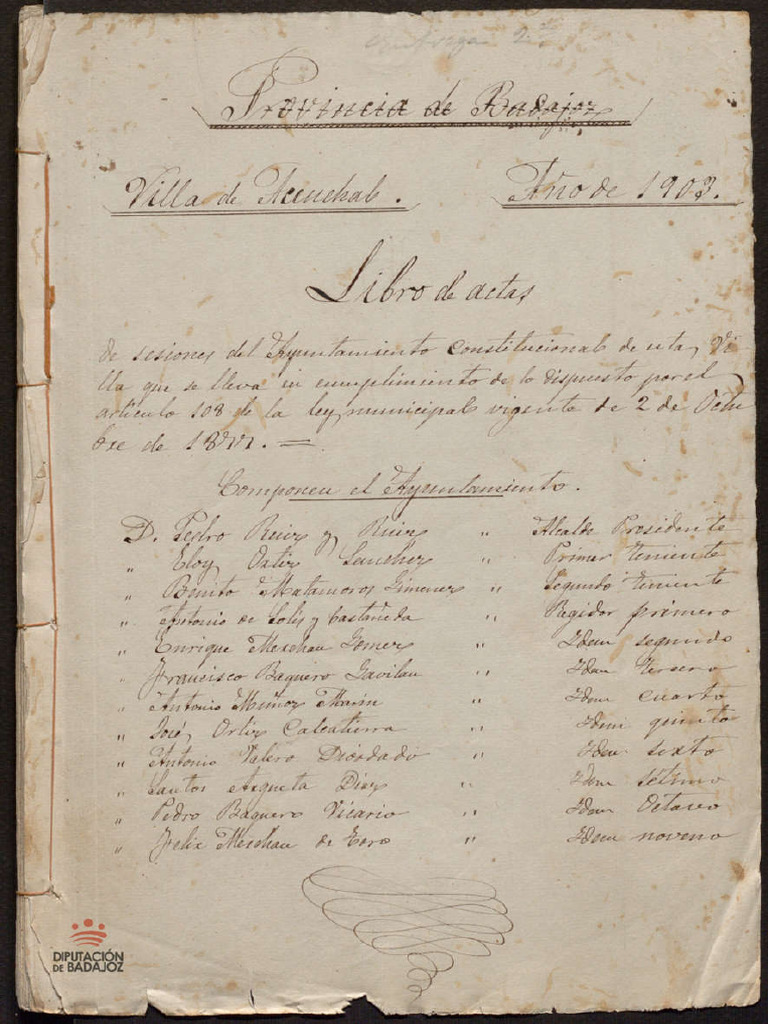 Entrega 2ª
Provincia de Badajoz
Villa de Aceuchal. Año de 1903.
Libro de actas
de sesiones del Ayuntamiento constitucional de esta Vi
lla que se lleva en cumplimiento de lo dispuesto por el
artículo 108 de la ley municipal vigente de 2 de Octu
bre de 1877. =
Componen el Ayuntamiento.
D. Pedro Ruiz y Ruiz " Alcalde Presidente
" Eloy Ortiz Sanchez " Primer teniente
" Benito Matamoros Gimenez " Segundo teniente
" Antonio de Solis y Castañeda " Regidor primero
" Enrique Merchan Gomez " Idem segundo
" Francisco Baquero Gavilan " Idem tercero
" Antonio Muñoz Marin " Idem cuarto
" José Ortiz Calcatierra " Idem quinto
" Antonio Valero Diosdado " Idem sexto
" Santos Argueta Diez " Idem sétimo
" Pedro Baquero Vicario " Idem Octavo
" Felix Merchan de Toro " Idem noveno
DIPUTACIÓN
DE BADAJOZ